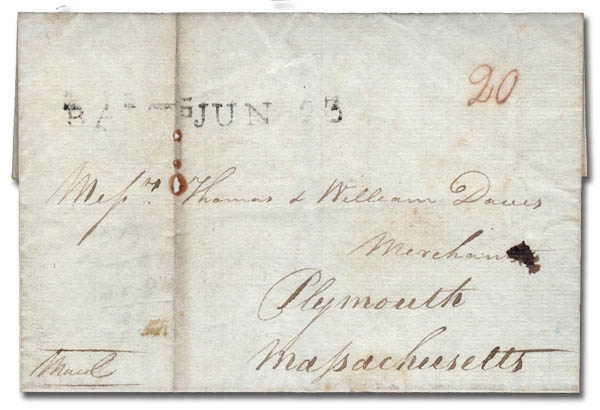 20
BALT JUN 23
Messrs. Thomas & William Davis
Merchants
Plymouth
Massachusetts
Mail